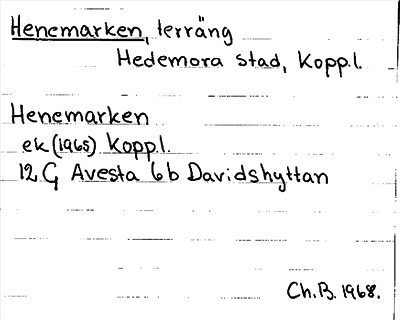 Henemarken, terräng
Hedemora stad, Koppl.
Henemarken
ek (1965) Koppl.
12 G Avesta 6b Davidshyttan
Ch.B. 1968.